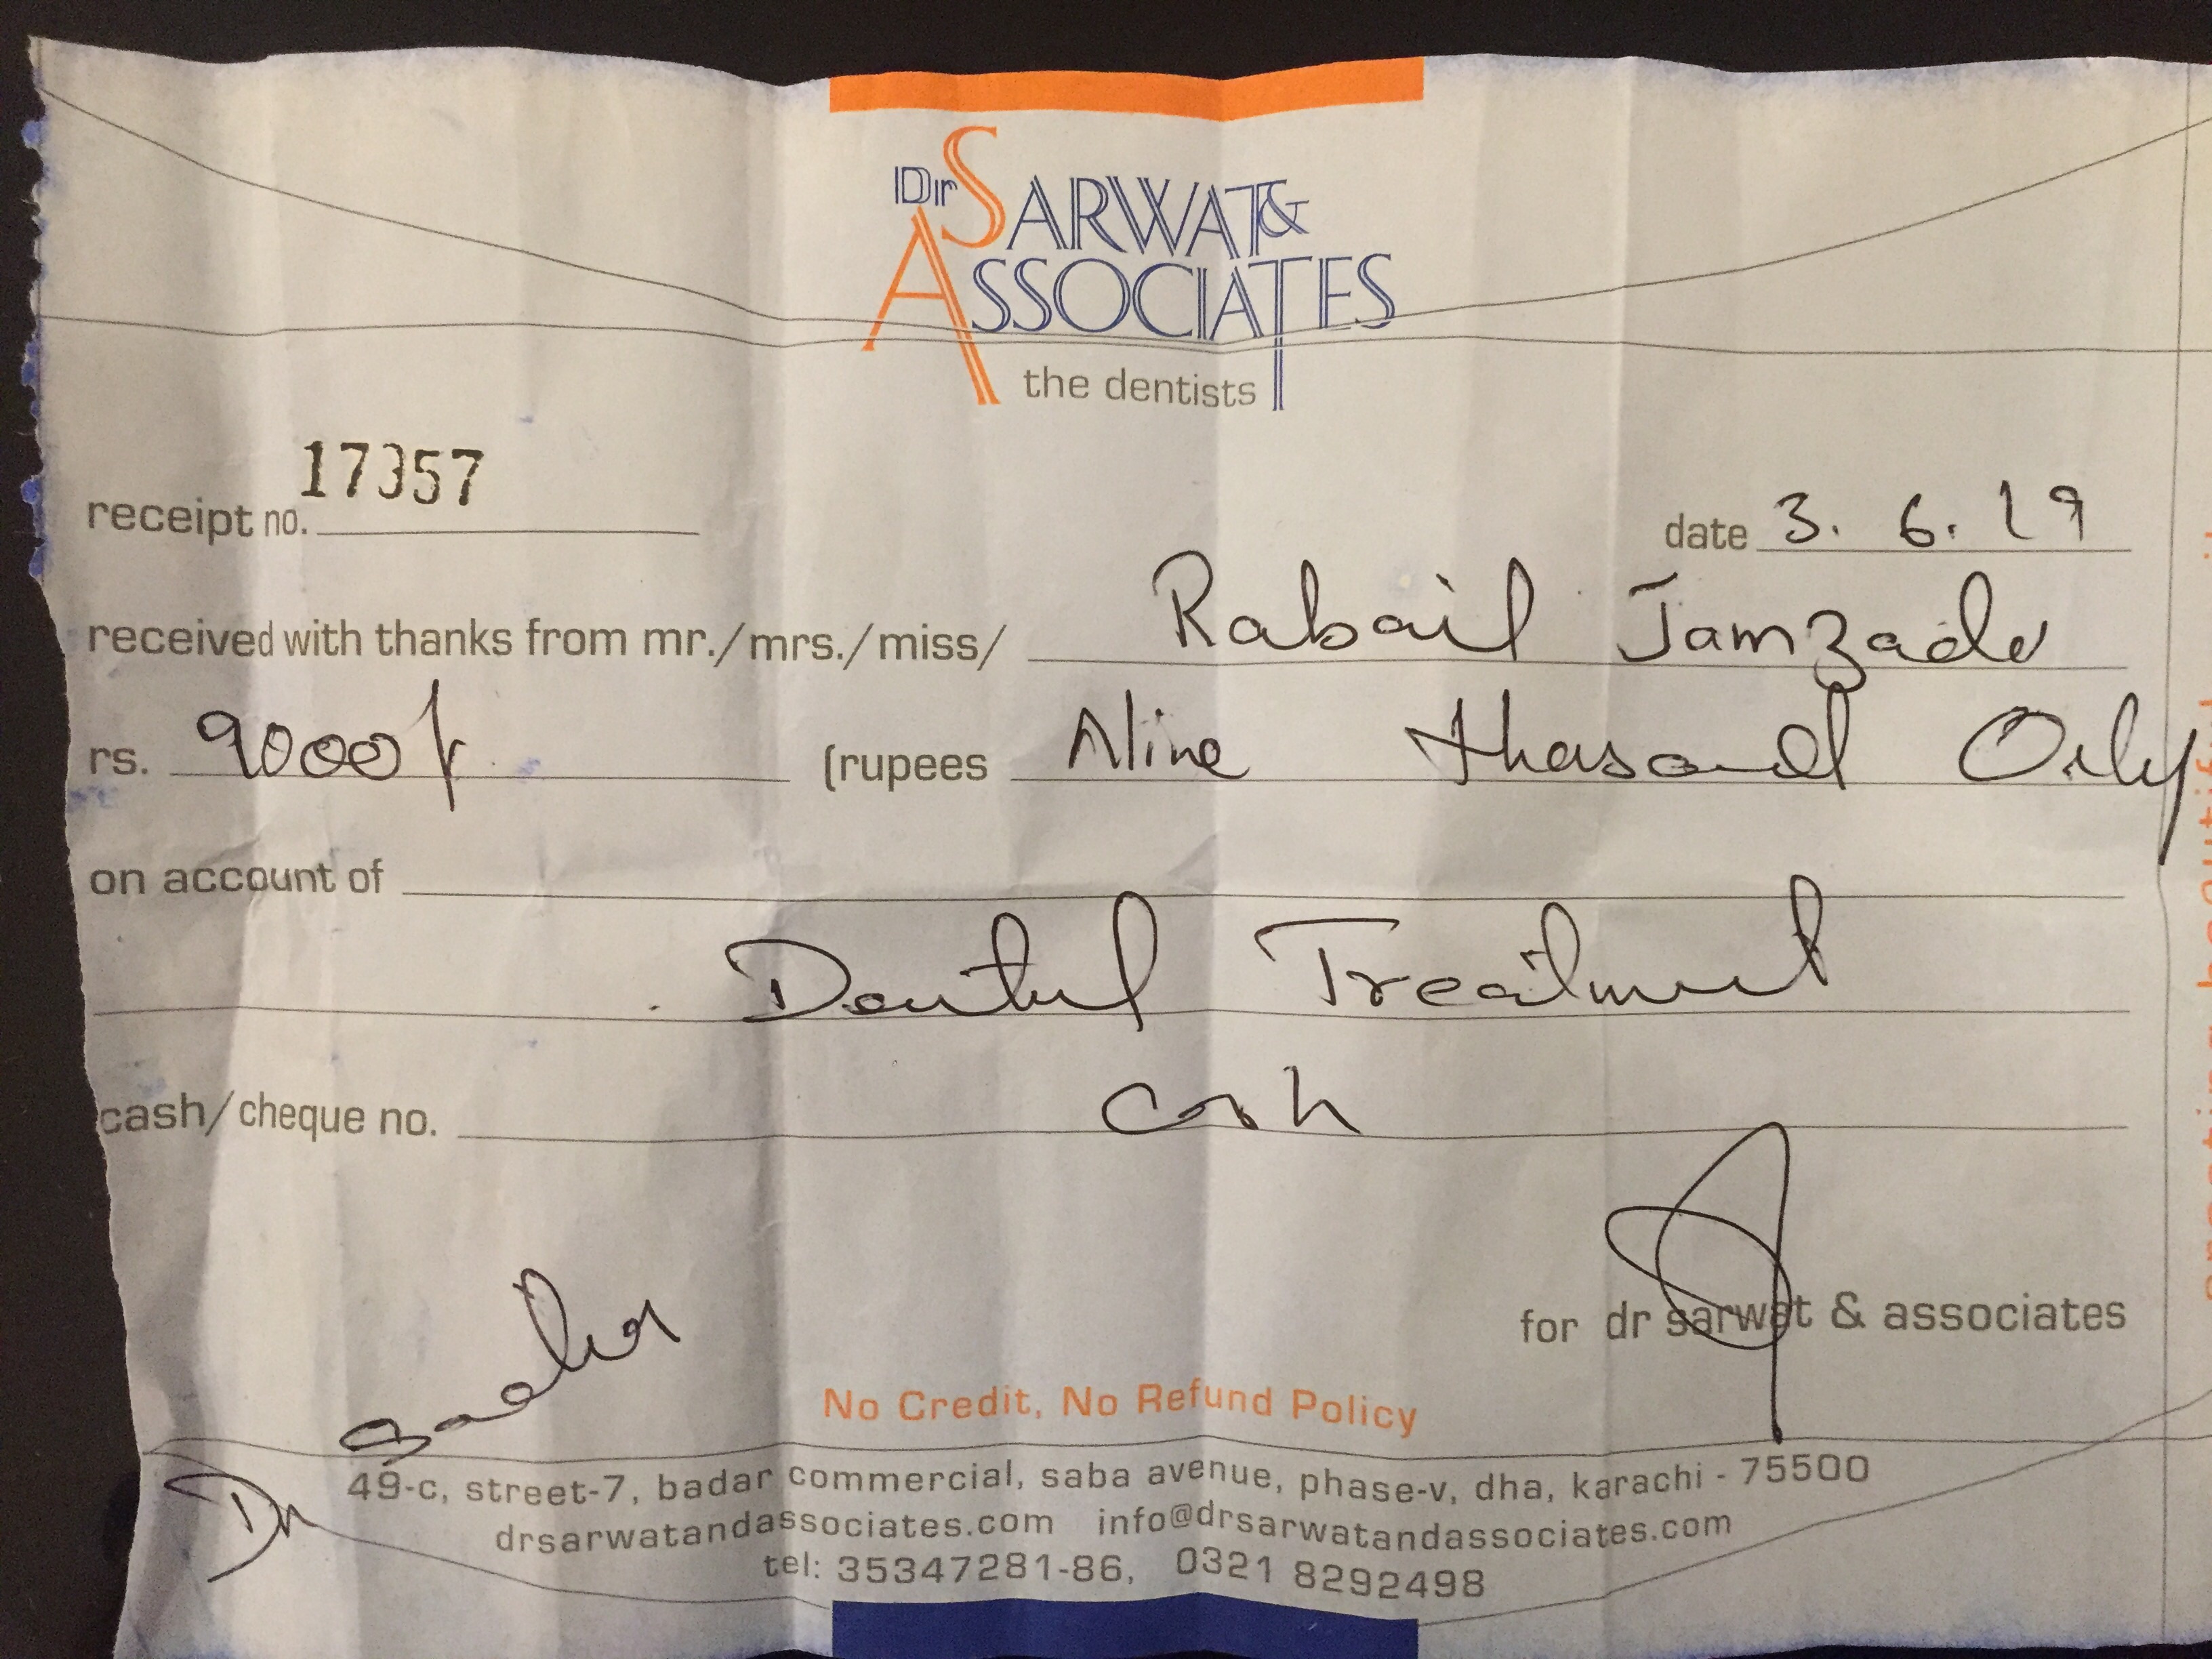 Dr SARWAT &
ASSOCIATES
the dentists
receipt no. 17357
date 3. 6. 19
received with thanks from mr./mrs./miss/ Rabail Jamzade
rs. 9000/- (rupees Nine thousand Only
on account of
Dental Treatment
cash/cheque no. Cash
for dr sarwat & associates
No Credit, No Refund Policy
Dr
49-c, street-7, badar commercial, saba avenue, phase-v, dha, karachi - 75500
drsarwatandassociates.com info@drsarwatandassociates.com
tel: 35347281-86, 0321 8292498
creating beautiful